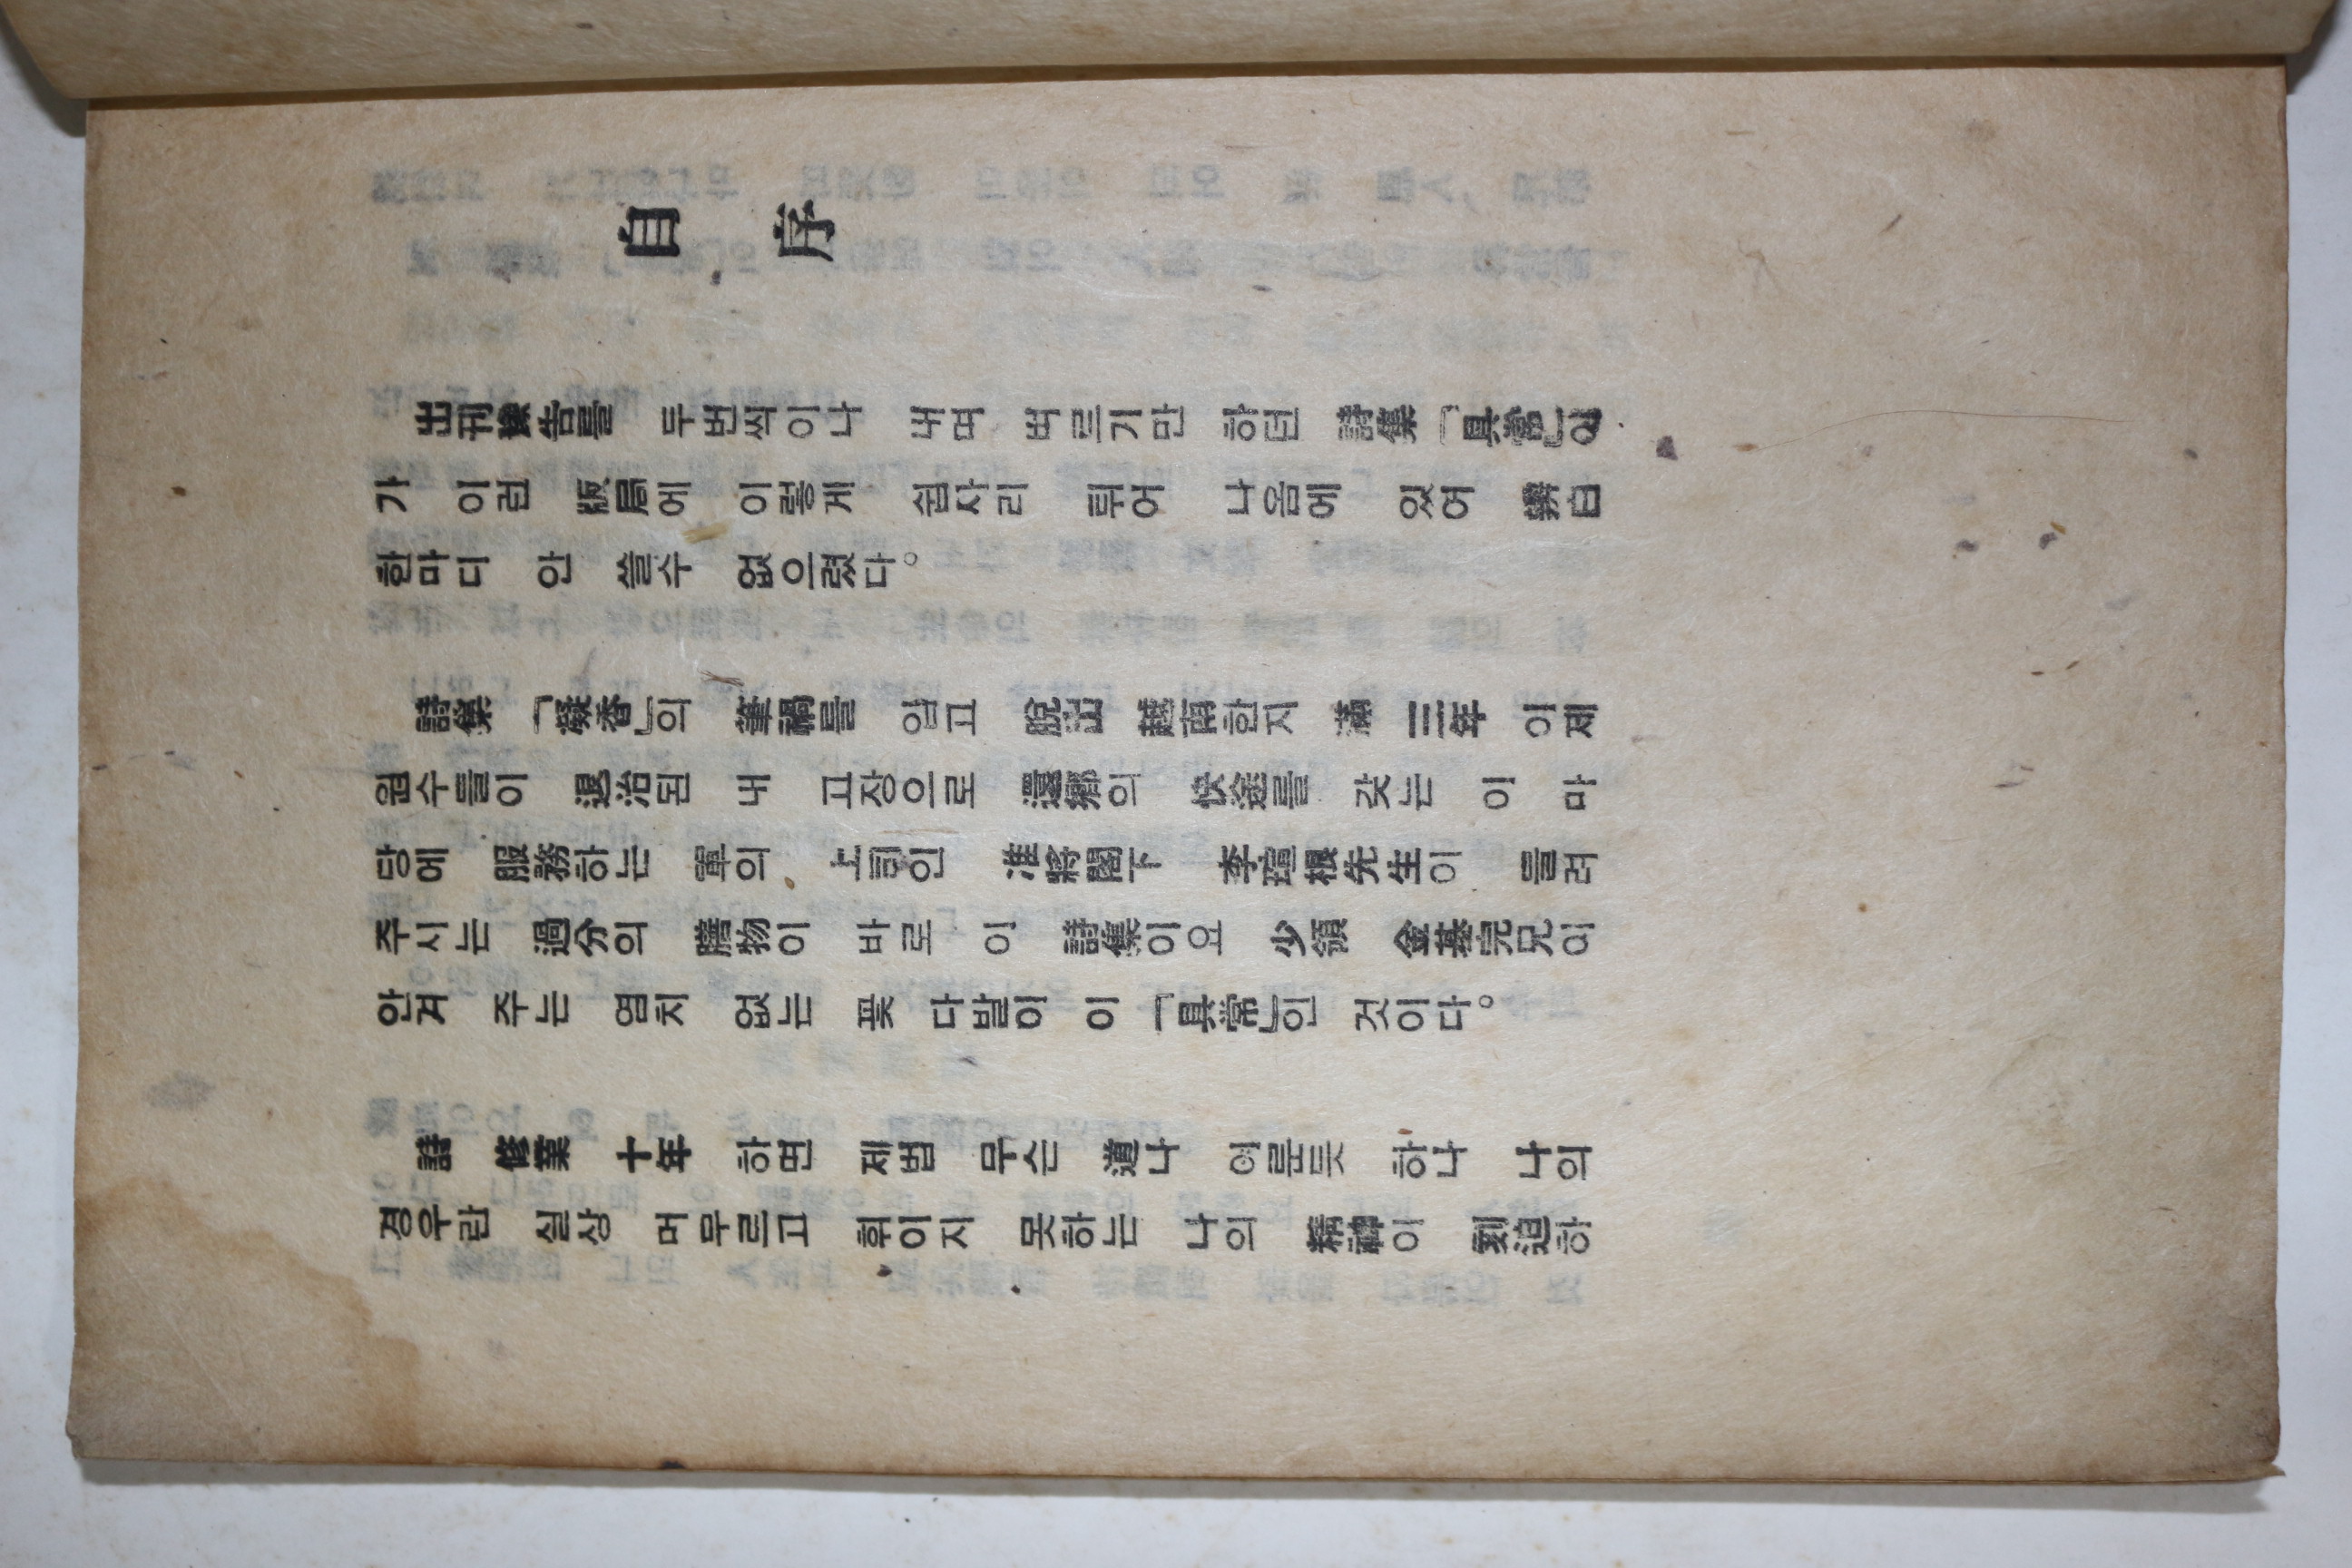 自序
出刊豫告를 두번씩이나 내며 벼르기만 하던 詩集「具常」이
가 이런 版局에 이렇게 쉽사리 튀어 나옴에 있여 辨白
한마디 안 쓸수 없으렸다。
詩集「凝香」의 筆禍를 입고 脫出 越南한지 滿 三年 이제
원수들이 退治된 내 고장으로 還鄕의 快途를 갖는 이 마
당에 服務하는 軍의 上司인 准將閣下 李瑄根先生이 들려
주시는 過分의 膳物이 바로 이 詩集이요 少領 金基完兄이
안겨 주는 염치 없는 꽃 다발이 이「具常」인 것이다。
詩 修業 十年 하면 제법 무슨 道나 이룬듯 하나 나의
경우란 실상 머무르고 휘이지 못하는 나의 精神이 刻迫하